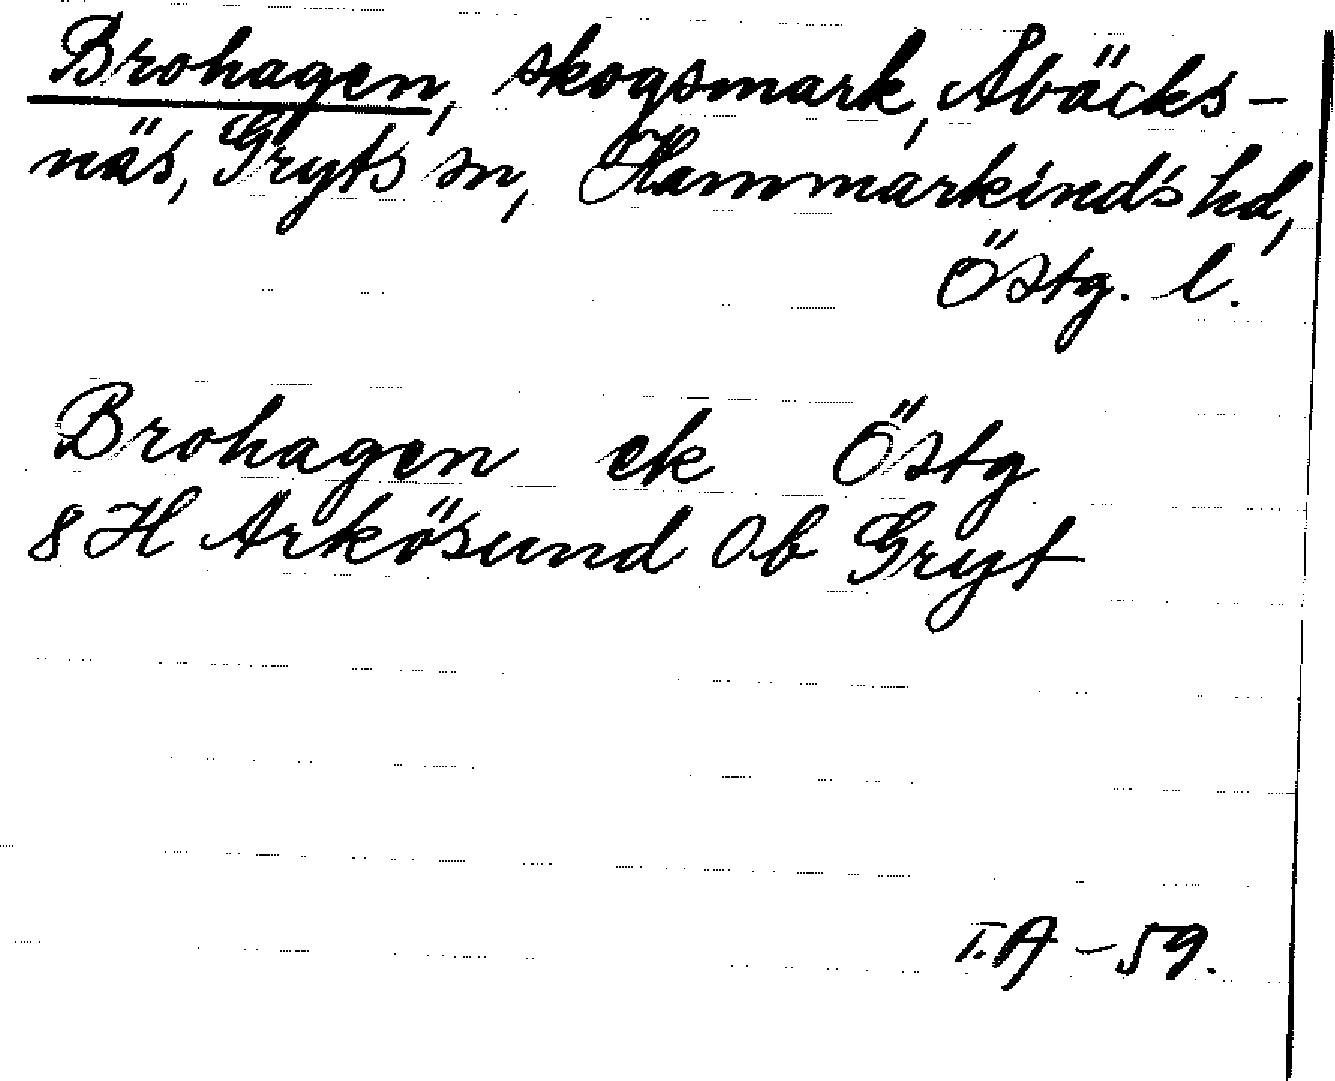 Brohagen, skogsmark, Åbäcks-
näs, Gryts sn, Hammarkinds hd,
Östg. l.
Brohagen ek Östg
8 H Arkösund Ob Gryt
T.A -59.